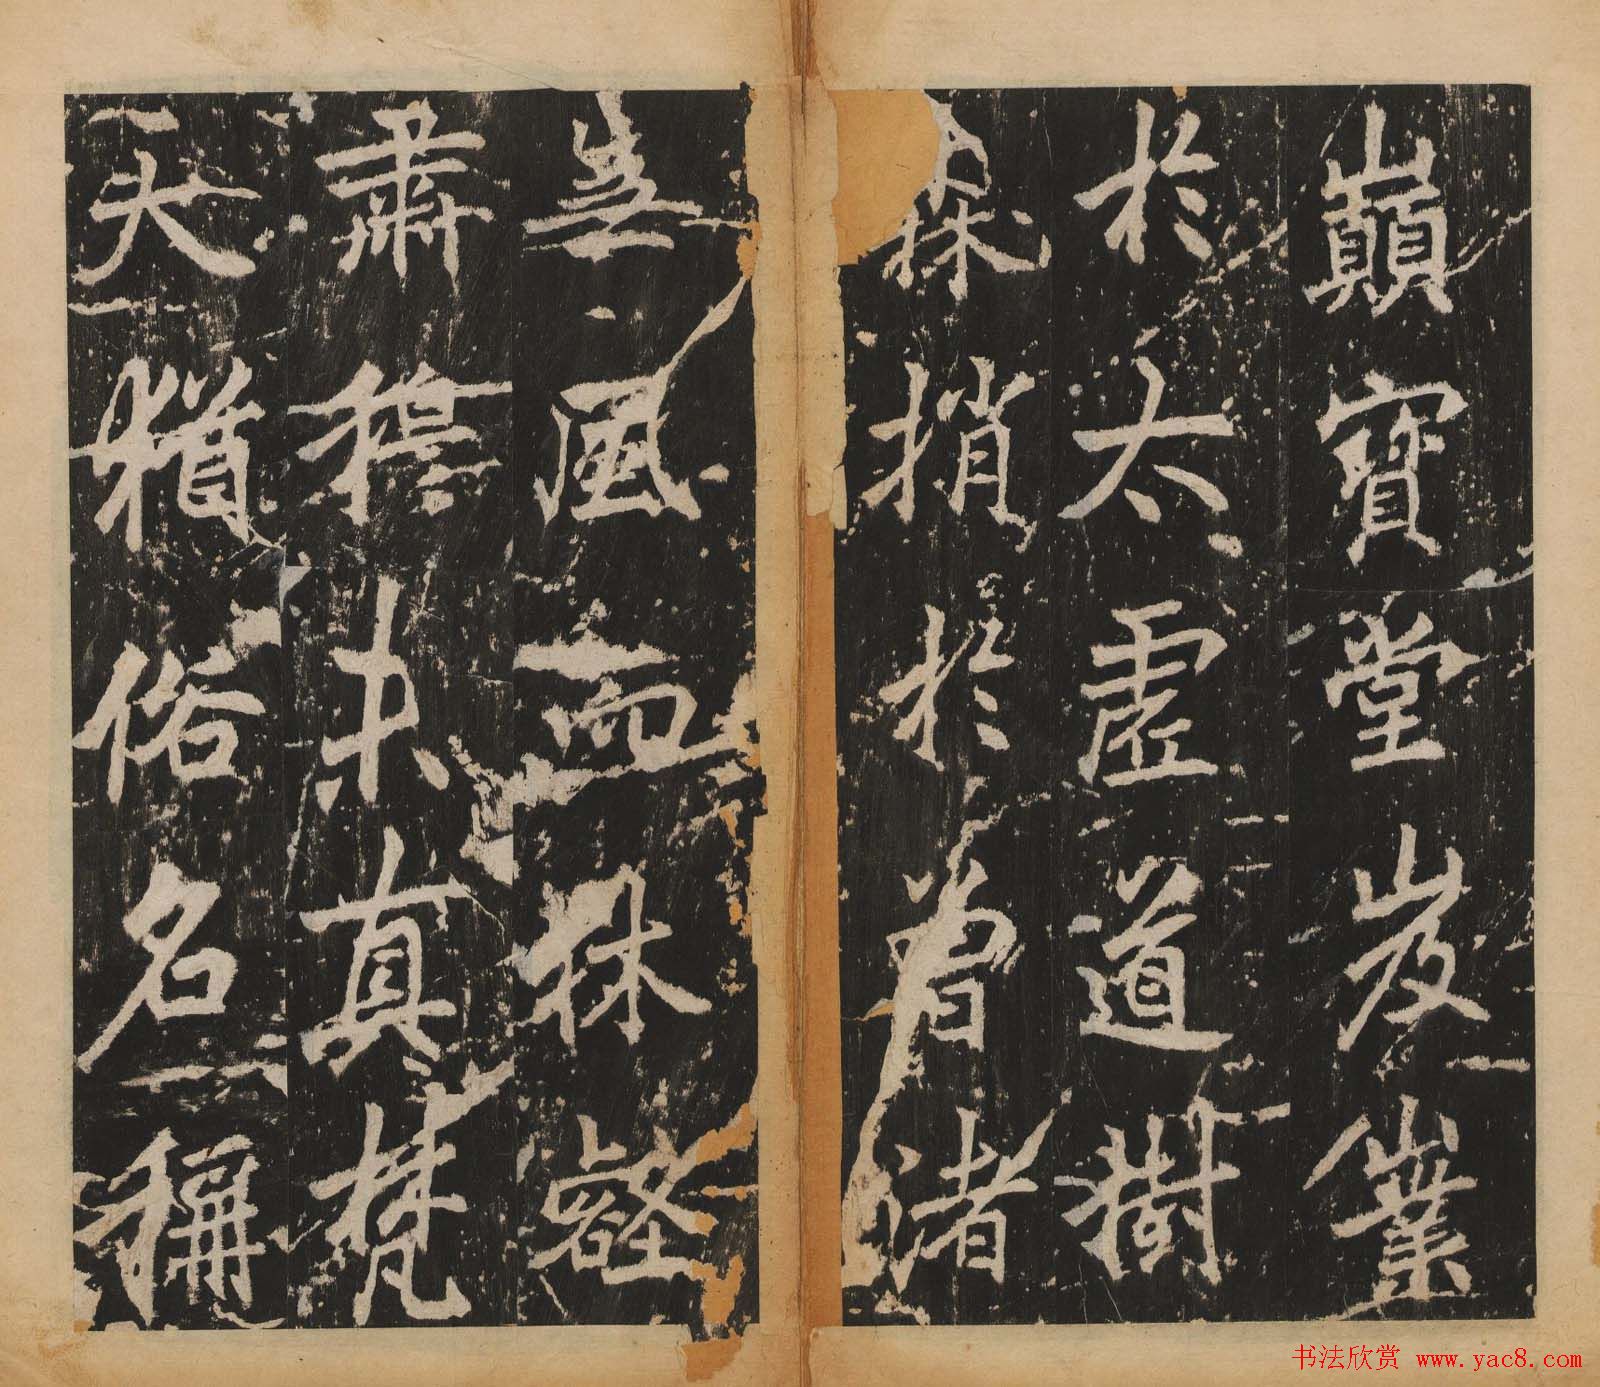 巔寶堂岌嶪
於太虛道樹
森捎於曾渚
無風而林壑
肅穆真梵
天猶俗名稱
书法欣赏 www.yac8.com